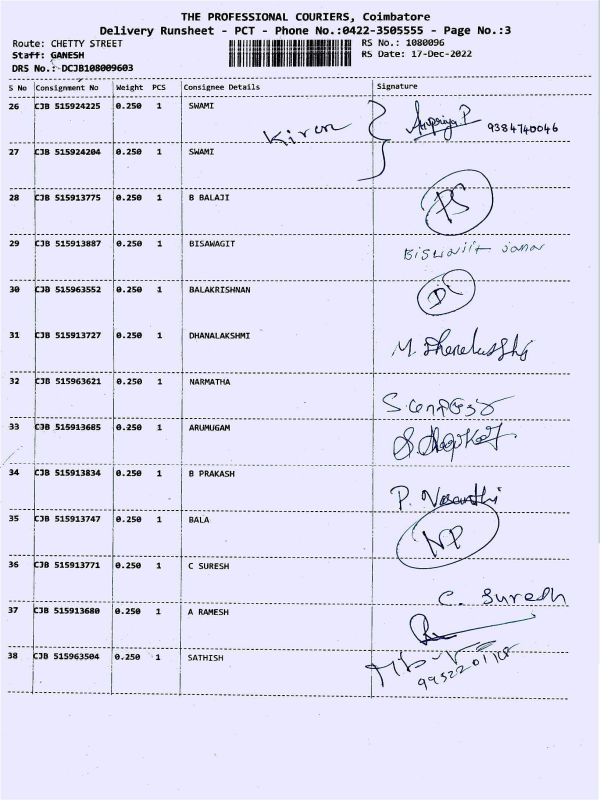 THE PROFESSIONAL COURIERS, Coimbatore
Delivery Runsheet - PCT - Phone No.:0422-3505555 - Page No.:3
Route: CHETTY STREET RS No.: 1080096
Staff: GANESH RS Date: 17-Dec-2022
DRS No.: DCJB108009603
S No Consignment No Weight PCS Consignee Details Signature
26 CJB 515924225 0.250 1 SWAMI
Kiran 9384740046
27 CJB 515924204 0.250 1 SWAMI
28 CJB 515913775 0.250 1 B BALAJI
PS
29 CJB 515913887 0.250 1 BISAWAGIT
30 CJB 515963552 0.250 1 BALAKRISHNAN
31 CJB 515913727 0.250 1 DHANALAKSHMI
32 CJB 515963621 0.250 1 NARMATHA
33 CJB 515913685 0.250 1 ARUMUGAM
34 CJB 515913834 0.250 1 B PRAKASH
P. Vasanthi
35 CJB 515913747 0.250 1 BALA
NP
36 CJB 515913771 0.250 1 C SURESH
C. Suresh
37 CJB 515913680 0.250 1 A RAMESH
38 CJB 515963504 0.250 1 SATHISH